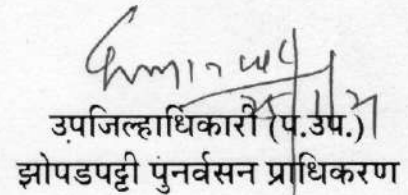 उपजिल्हाधिकारी (प.उप.)
झोपडपट्टी पुनर्वसन प्राधिकरण